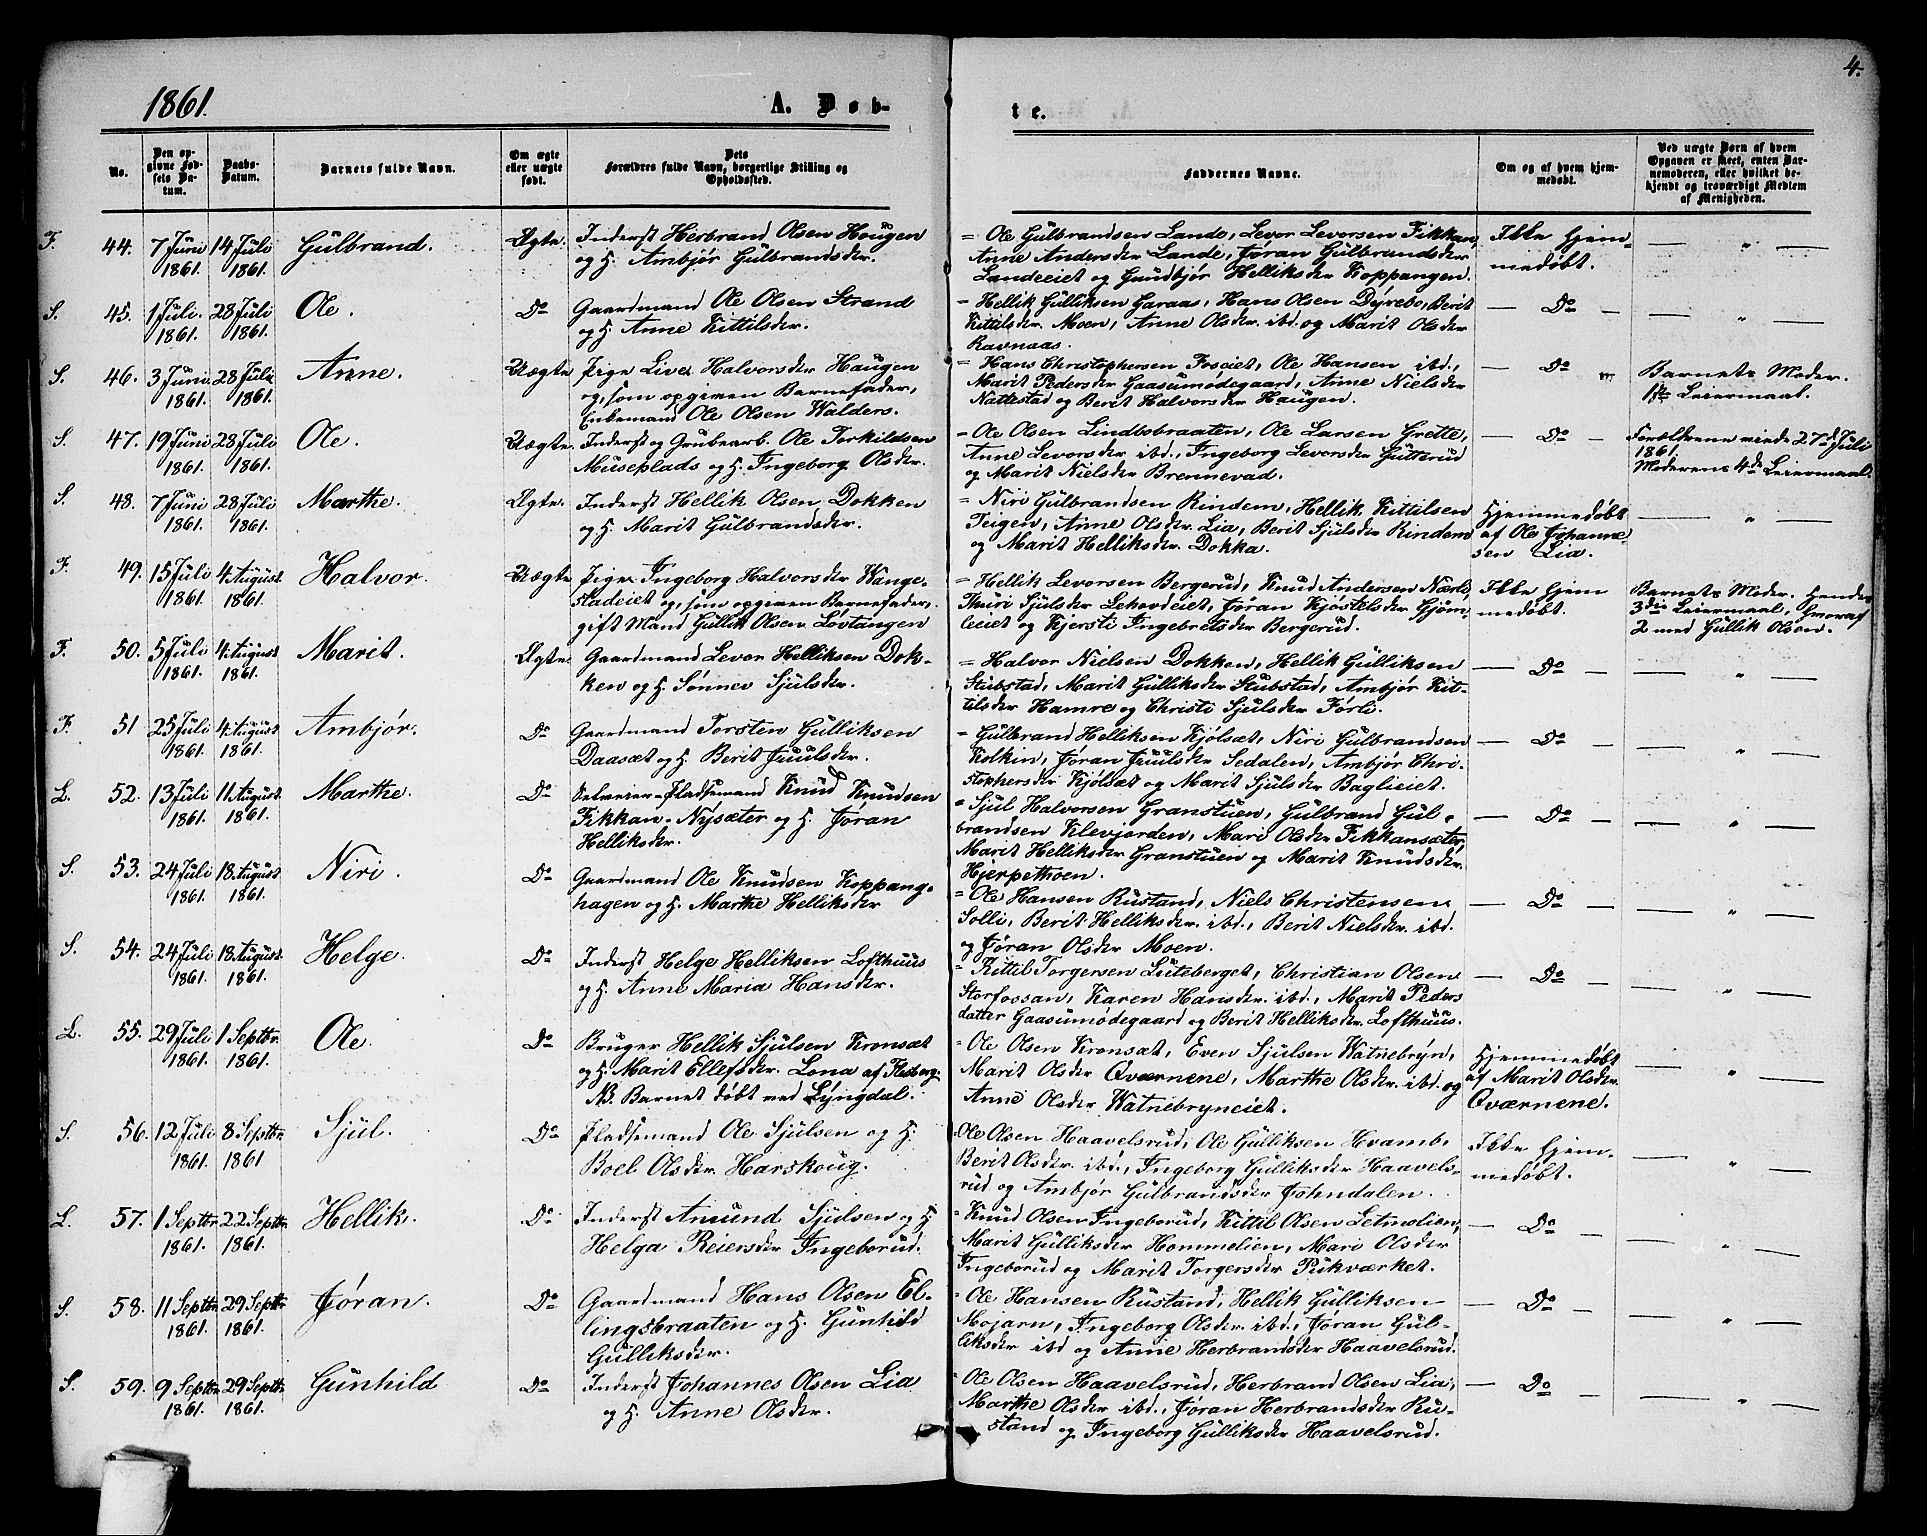 1861.
A. Døb-
te.
4.
No.
Den op-
givne Fød-
sels Da-
tum.
Daabs-
Datum.
Barnets fulde Navn.
Om ægte
eller uægte
født.
Dets
Forældres fulde Navn, borgerlige Stilling og
Opholdssted.
Faddernes Navne.
Om og af hvem hjem-
medøbt.
Ved uægte Børn af hvem
Opgaven er skeet, enten Bar-
nemoderen, eller hvilket be-
kjendt og troværdigt Medlem
af Menigheden.
F. 44. 7 Juni 1861. 14 Juli 1861. Gulbrand. Ægte.
Inderst Herbrand Olsen Hougen
og H. Ambjør Gulbrandsder.
= Ole Gulbrandsen Lande, Levor Levorsen Fikkan,
Anne Andersder Lande, Jøran Gulbrandsder
Landeeiet og Gundbjør Helliksder Koppangen.
Ikke hjem-
medøbt.
— " —
S. 45. 1 Juli. 1861. 28 Juli 1861. Ole. Do
Gaardmand Ole Olsen Strand
og H. Anne Kittilsder.
= Hellik Gulliksen Garaas, Hans Olsen Dyrebo, Berit
Kittilsder Moen, Anne Olsder ibd. og Marit Olsder
Ravnaas.
— Do —
— " —
S. 46. 3 Juni 1861. 28 Juli 1861. Anne. Uægte
Pige Live Halvorsder Haugen
og, som opgiven Barnefader,
Enkemand Ole Olsen Walders.
= Hans Christophersen Foseiet, Ole Hansen ibd.,
Marit Pedersder Gaasumødegaard, Anne Nielsder
Nattestad og Berit Halvorsder Haugen.
— Do "
Barnets Moder.
1ste Leiermaal.
S. 47. 19 Juni 1861. 28 Juli 1861. Ole. Uægte.
Inderst og Grubearb. Ole Torkildsen
Museplads og H. Ingeborg Olsder.
= Ole Olsen Lindbsbraaten, Ole Larsen Grette,
Anne Levorsder ibd., Ingeborg Leversder Gutterud
og Marit Nielsder Brennevad.
— Do —
Forældrene viede 27de Juli
1861.
Moderens 4de Leiermaal.
S. 48. 7 Juni 1861. 28 Juli 1861. Marthe. Ægte.
Inderst Hellik Olsen Dokken
og H. Marit Gulbrandsder.
= Niri Gulbrandsen Rindem, Hellik Kittilsen
Teigen, Anne Olsder Lia, Berit Sjulsder Rindem
og Marit Helliksder Dokka.
Hjemmedøbt
af Ole Johanne-
sen Lia.
— " —
F. 49. 15 Juli 1861. 4. August 1861. Halvor. Uægte
Pige Ingeborg Halvorsder Wange-
stadeiet og, som opgiven Barnefader,
gift Mand Gullik Olsen Lovtangen
= Hellik Levorsen Bergerud, Knud Andersen Nærli,
Thuri Sjulsder Lehovdeiet, Jøran Kjøstelsder Gjørn-
leeiet og Kjersti Ingebretsder Bergerud.
Ikke hjem
medøbt.
Barnets Moder. Hendes
3die Leiermaal, hvoraf
2 med Gullik Olsen.
F. 50. 5 Juli 1861. 4. August 1861. Marit. Ægte.
Gaardmand Levor Helliksen Dok-
ken og H. Sønnev Sjulsder.
= Halvor Nielsen Dokken, Hellik Gulliksen
Stubstad, Marit Gulliksder Stubstad, Ambjør Kit-
tilsder Hamre og Christi Sjulsder Førli.
— Do —
— " —
F. 51 25 Juli 1861. 4. August 1861. Ambjør. Do
Gaardmand Torsten Gulliksen
Daasæt og H. Berit Juulsder.
= Gulbrand Helliksen Kjølsæt, Niri Gulbrandsen
Kolkin, Jøran Juulsder Sedalen, Ambjør Chri-
stophersder Kjølsæt og Marit Sjulsder Baglieiet.
— Do —
— " —
L. 52. 13 Juli 1861. 11 August. 1861. Marthe. Do
Selveier-Pladsemand Knud Knudsen
Fikkan-Nysæter og H. Jøran
Helliksder.
= Sjul Halvorsen Granstuen, Gulbrand Gul-
brandsen Klevjorden, Mari Olsder Fikkansæter,
Marit Helliksder Granstuen og Marit Knudsder.
Hjerpethoen.
— Do —
— " —
S. 53. 24 Juli 1861. 18. August 1861. Niri. Do
Gaardmand Ole Knudsen Koppang-
hagen og H. Marthe Helliksder
= Ole Hansen Rustand, Niels Christensen
Solli, Berit Helliksder. ibd., Berit Nielsder. ibd.
og Jøran Olsder Moen.
— Do —
— " —
S. 54. 24 Juli 1861. 18. August 1861. Helge. Do
Inderst Helge Helliksen Lofthuus
og H. Anne Maria Hansder.
= Kittil Torgersen Luteberget, Christian Olsen
Storfossan, Karen Hansder. ibd., Marit Peders
datter Gaasumødegaard og Berit Helliksder. Lofthuus.
— Do —
— " —
L. 55. 29 Juli 1861. 1 Septbr. 1861. Ole. Do
Bruger Hellik Sjulsen Kronsæt
og H. Marit Ellefsder. Lona af Flesberg.
NB. Barnet døbt ved Lyngdal.
= Ole Olsen Kronsæt, Even Sjulsen Watnebryn,
Marit Olsder Qværnene, Marthe Olsder. ibd. og
Anne Olsder Watnebryneiet.
Hjemmedøbt
af Marit Olsder.
Qværnene.
— " —
S. 56. 12 Juli 1861. 8 Septbr. 1861 Sjul. Do
Pladsemand Ole Sjulsen og H.
Boel Olsder. Harskoug.
= Ole Olsen Haavelsrud, Ole Gulliksen Hvamb.
Berit Olsder. ibd., Ingeborg Gulliksder Haavels-
rud og Ambjør Gulbrandsder Johndalen.
Ikke hjem-
medøbt.
— " —
L. 57. 1 Septbr. 1861. 22 Septbr. 1861. Hellik. Do
Inderst Amund Sjulsen og H.
Helga Reiersder Ingeborud.
= Knud Olsen Ingeborud, Kittil Olsen Letmolien,
Marit Gulliksder Hommelien, Mari Olsder
Ingeborud og Marit Torgersder Pukværket.
— Do —
— " —
S. 58. 11 Septbr. 1861. 29 Septbr. 1861. Jøran. Do
Gaardmand Hans Olsen El-
lingsbraaten og H. Gunhild
Gulliksder.
= Ole Hansen Rustand, Hellik Gulliksen
Mojarn, Ingeborg Olsder. ibd., Jøran Gul-
liksder ibd og Anne Herbrandsder Haavelsrud.
— Do —
— " —
S. 59. 9 Septbr. 1861. 29 Septbr. 1861. Gunhild Do
Inderst Johannes Olsen Lia
og H. Anne Olsder.
= Ole Olsen Haavelsrud, Herbrand Olsen Lia,
Marthe Olsder ibd., Jøran Herbrandsder Ru-
stand og Ingeborg Gulliksder Haavelsrud.
— Do —
— " —